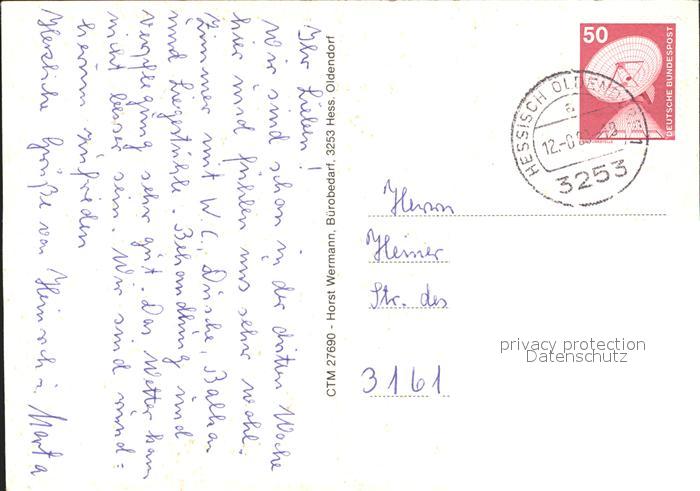 Ihr Lieben!
Wir sind schon in der dritten Woche
hier und fühlen uns sehr wohl.
Zimmer mit W.C., Dusche, Balkon
und Liegestühle. Behandlung und
verpflegung sehr gut. Das Wetter kann
nicht besser sein. Wir sind rund=
herum zufrieden
Herzliche Grüße von Heinrich u. Marta
CTM 27690 - Horst Wermann, Bürobedarf, 3253 Hess. Oldendorf
50
DEUTSCHE BUNDESPOST
HESSISCH OLDENDORF 1
a
3253
Herrn
Heiner
Str. des
3161
privacy protection
Datenschutz